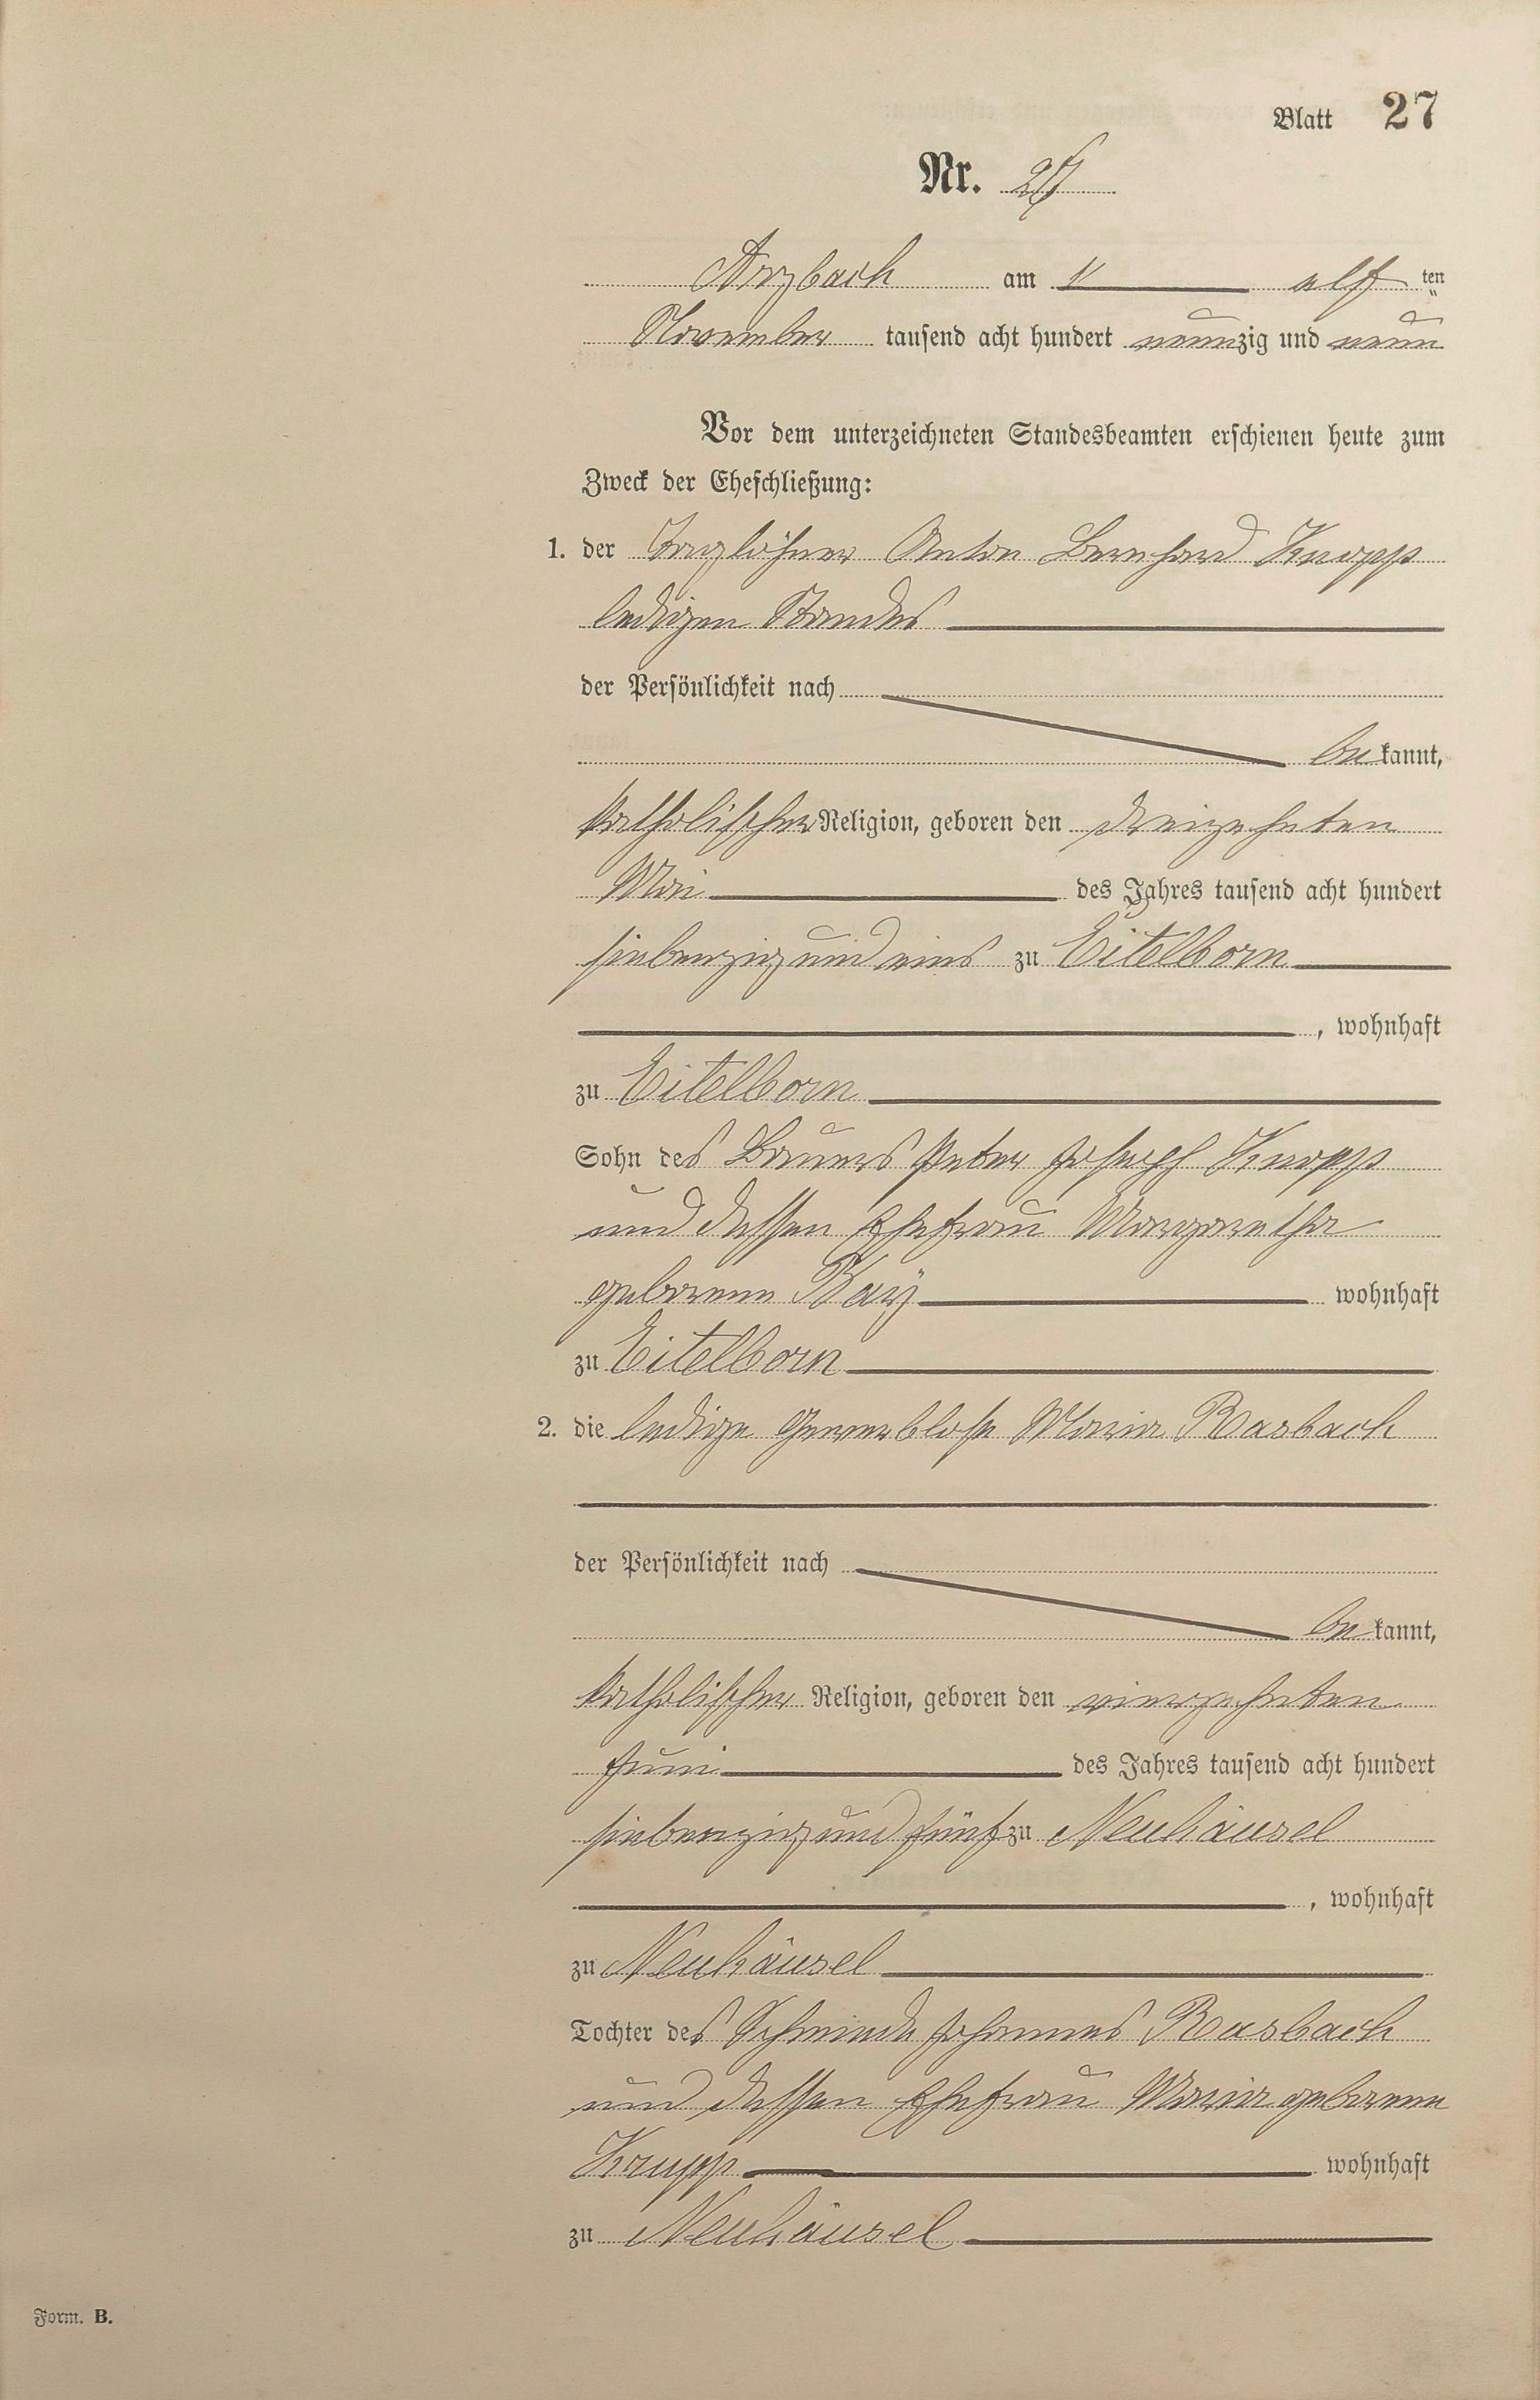 Blatt 27
Nr. 27
Arzbach am elf ten
November tausend acht hundert neunzig und neun
Vor dem unterzeichneten Standesbeamten erschienen heute zum
Zweck der Eheschließung:
1. der Taglöhner Anton Bernhard Knopp
ledigen Standes
der Persönlichkeit nach
bekannt,
katholischer Religion, geboren den dreizehnten
Mai des Jahres tausend acht hundert
siebenzig und eins zu Eitelborn
, wohnhaft
zu Eitelborn
Sohn des Bauers Peter Joseph Knopp
und dessen Ehefrau Margaretha
geborene Kaÿ wohnhaft
zu Eitelborn
2. die ledige gewerblose Maria Basbach
der Persönlichkeit nach
bekannt,
katholischer Religion, geboren den vierzehnten
Juni des Jahres tausend acht hundert
siebenzig und fünf zu Neuhäusel
, wohnhaft
zu Neuhäusel
Tochter des Schmieds Johannes Basbach
und dessen Ehefrau Maria geborene
Krupp wohnhaft
zu Neuhäusel
Form. B.